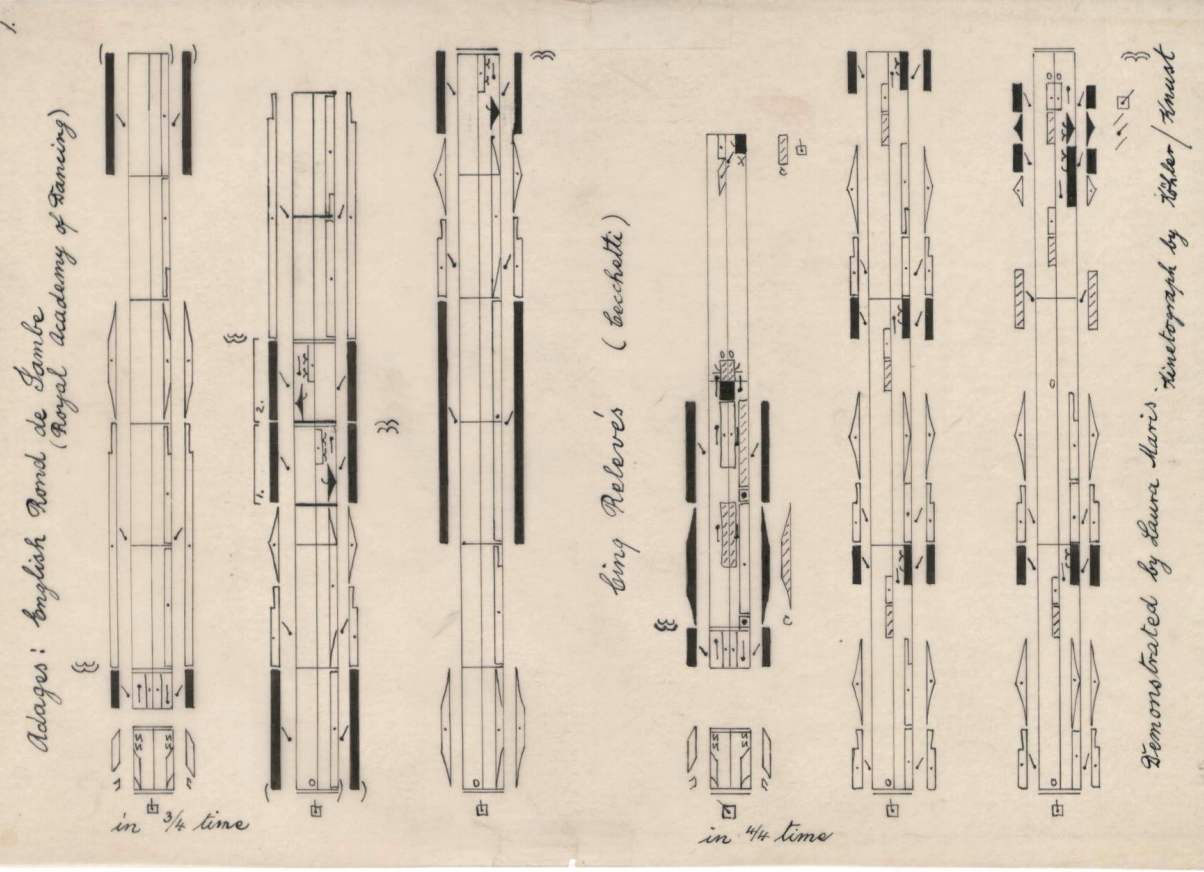 1.
Adages: English Rond de Jambe
(Royal Academy of Dancing)
in 3/4 time
1.
2.
Cinq Relevés (Cecchetti)
in 4/4 time
Demonstrated by Laura Maris. Kinetograph by Köhler/Knust